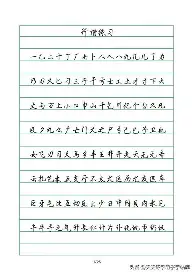 行楷练习
一乙二十丁厂七卜人入八九几儿了力
乃刀又三于干亏士工土才寸下大
丈与万上小口巾山千乞川亿个勺久凡
及夕丸么广亡门义之尸弓己已子卫也
女飞刃习叉马乡丰王井开夫天无元专
云扎艺木五支厅不太犬区历尤友匹车
巨牙屯比互切瓦止少日中冈贝内水见
午牛手毛气升长仁什片仆化仇币仍仅